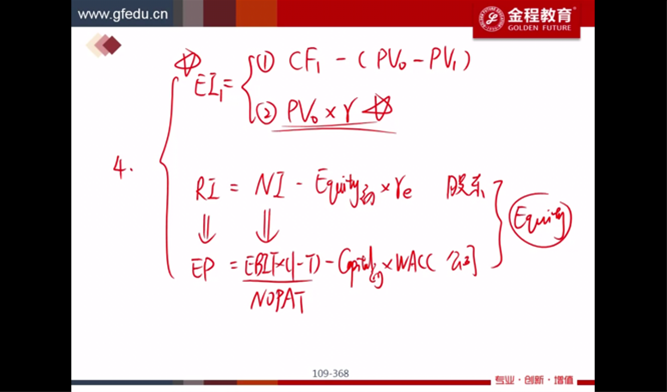 www.gfedu.cn
金程教育
GOLDEN FUTURE
① CF₁ - ( PV₀ - PV₁ )
EI₁ =
② PV₀ × r
4.
RI = NI - Equity初 × re 股东
Equity
EP = EBIT×(1-T) - Capital初 × WACC 公司
NOPAT
109-368
专业·创新·增值